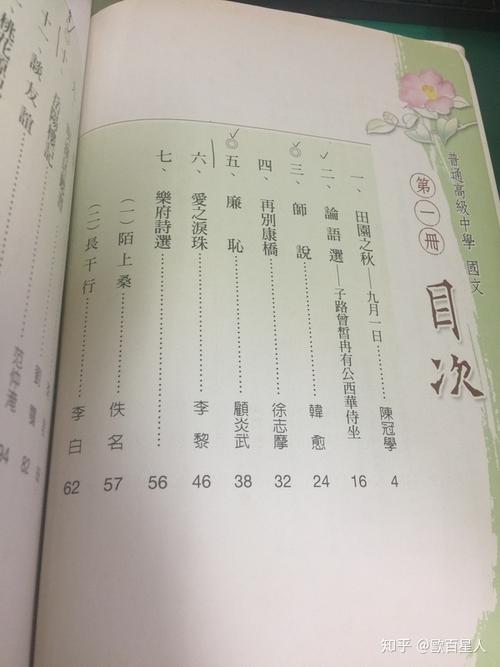 普通高級中學 國文
第一冊
目次
一、田園之秋——九月一日……陳冠學 4
二、論語選——子路曾皙冉有公西華侍坐 16
三、師說……韓愈 24
四、再別康橋……徐志摩 32
五、廉恥……顧炎武 38
六、愛之淚珠……李黎 46
七、樂府詩選……56
(一)陌上桑……佚名 57
(二)長干行……李白 62
82
范仲淹 94
十一、談友誼
桃花源記
知乎 @歐百星人